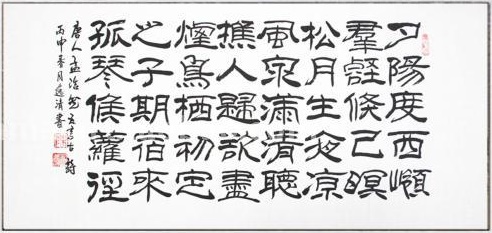 夕陽度西嶺
羣壑倏已暝
松月生夜涼
風泉滿清聽
樵人歸欲盡
煙鳥栖初定
之子期宿來
孤琴候蘿徑
唐人孟浩然五言古詩
丙申春月逸清書